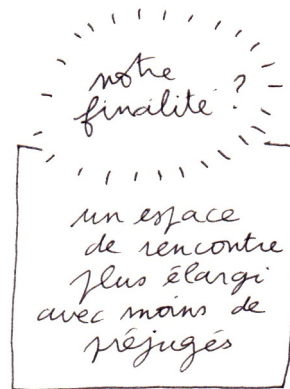 notre
finalité ?
un espace
de rencontre
plus élargi
avec moins de
préjugés